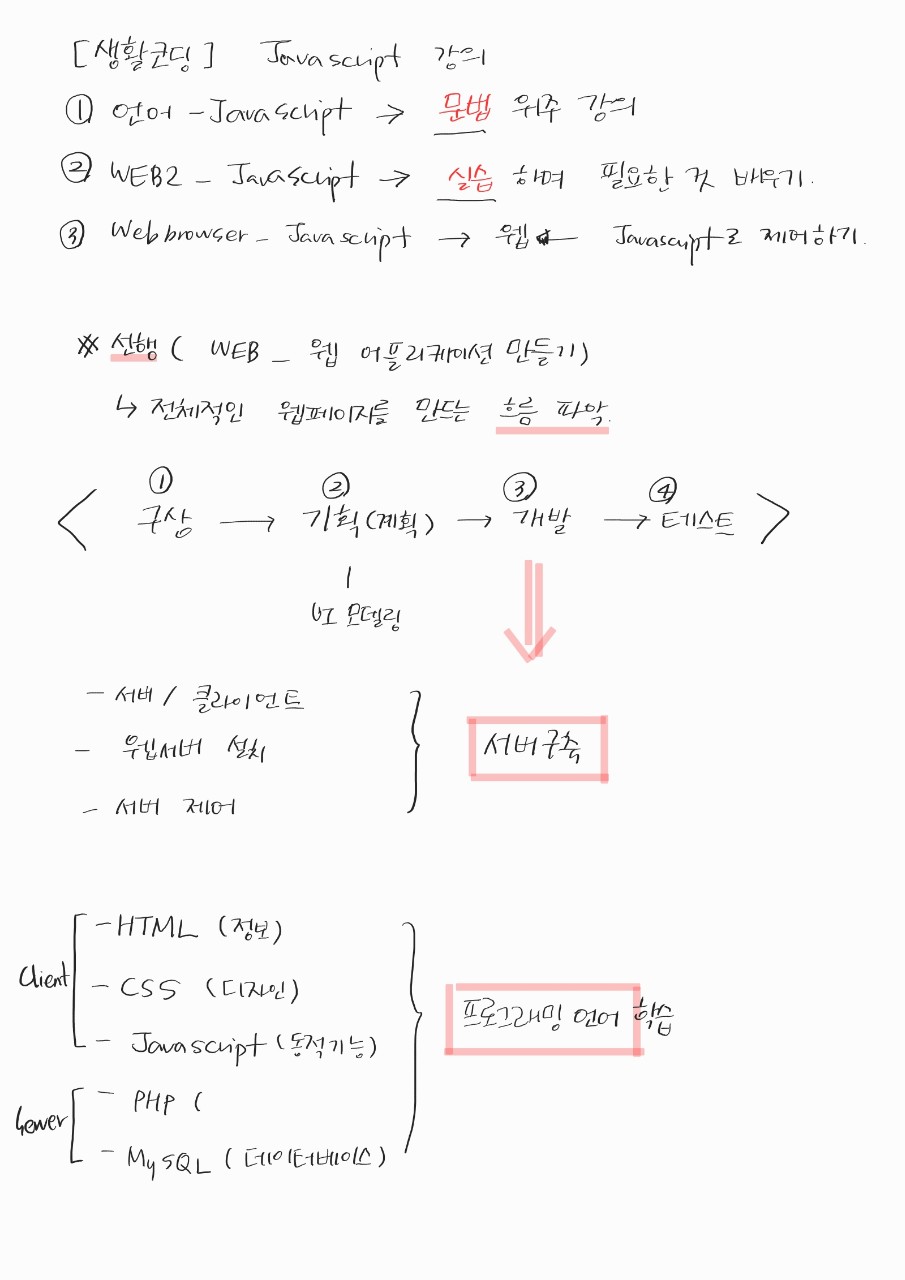 [생활코딩] Javascript 강의
① 언어 - JavaScript → 문법 위주 강의
② WEB2 - JavaScript → 실습 하며 필요한 것 배우기.
③ Web browser - Javascript → 웹 ← Javascript로 제어하기.
※ 선행 ( WEB - 웹 어플리케이션 만들기)
↳ 전체적인 웹페이지를 만드는 흐름 파악.
① ② ③ ④
< 구상 → 기획(계획) → 개발 → 테스트 >
UI 모델링
- 서버 / 클라이언트
- 웹서버 설치
- 서버 제어
서버구축
Client
- HTML (정보)
- CSS (디자인)
- Javascript (동적기능)
Server
- PHP (
- MySQL ( 데이터베이스)
프로그래밍 언어 학습